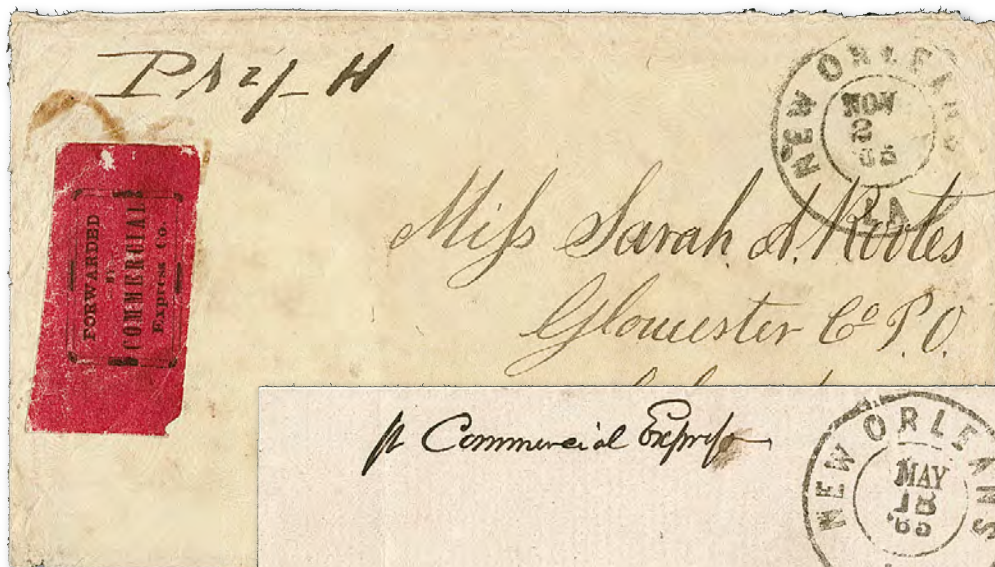 NEW ORLEANS
NOV
2
65
LA
FORWARDED
BY
COMMERCIAL
Express Co.
Miſs Sarah A. Rootes
Gloucester Co P.O.
pr Commercial Expreſs
NEW ORLEANS
MAY
18
'65